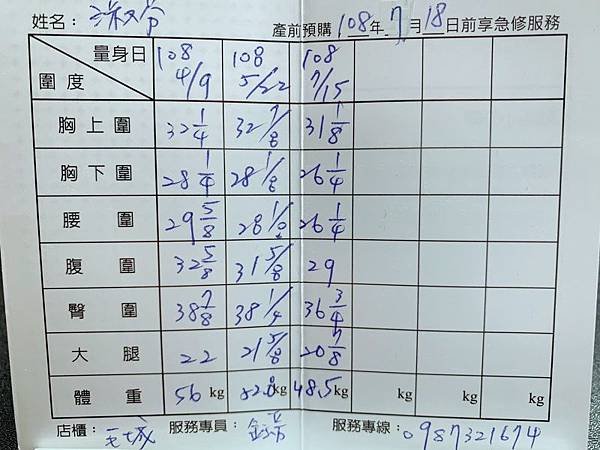 姓名： 產前預購 108年 7月18日前享急修服務
量身日 108 4/9 108 5/22 108 7/15
圍度
胸上圍 32 1/4 32 7/8 31 1/8
胸下圍 28 1/4 28 1/8 26 1/4
腰圍 29 5/8 28 1/2 26 1/4
腹圍 32 5/8 31 5/8 29
臀圍 38 7/8 38 1/4 36 3/4
大腿 22 21 5/8 20 7/8
體重 56 kg kg 48.5 kg kg kg kg
店櫃： 服務專員： 服務專線：0987321674